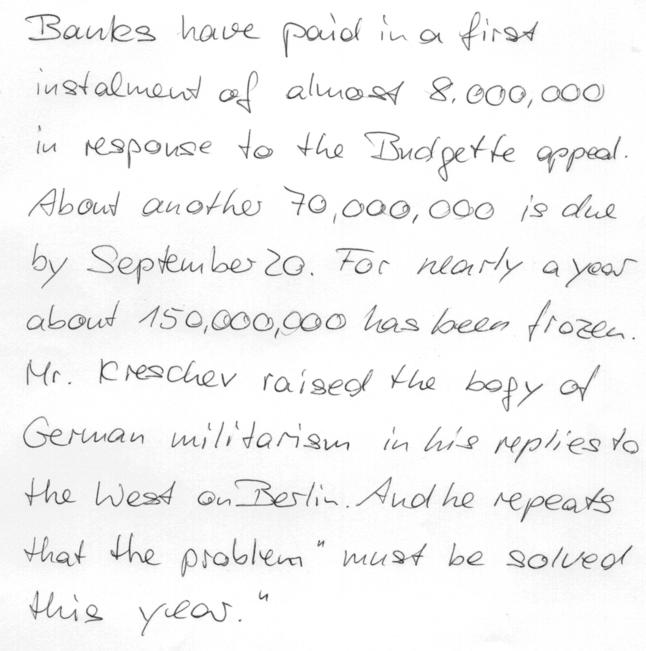 Banks have paid in a first
instalment of almost 8.000,000
in response to the Budgette appeal.
About another 70,000,000 is due
by September 20. For nearly a year
about 150,000,000 has been frozen.
Mr. Kreschev raised the bogy of
German militarism in his replies to
the West on Berlin. And he repeats
that the problem "must be solved
this year."